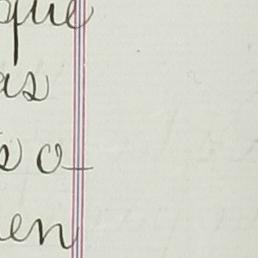 que
as
s o-
en